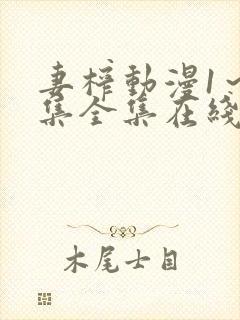 妻榨動漫1~
集全集在綫
木尾士目